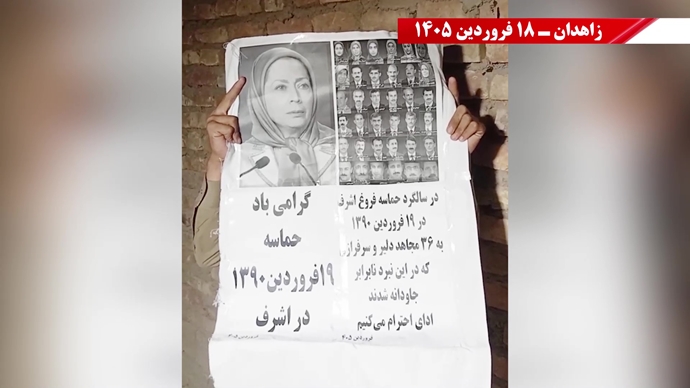 زاهدان ـ ۱۸ فروردین ۱۴۰۵
در سالگرد حماسه فروغ اشرف
در ۱۹ فروردین ۱۳۹۰
به ۳۶ مجاهد دلیر و سرفراز
که در این نبرد نابرابر
جاودانه شدند
ادای احترام می‌کنیم
فروردین ۱۴۰۵
گرامی باد
حماسه
۱۹فروردین۱۳۹۰
در اشرف